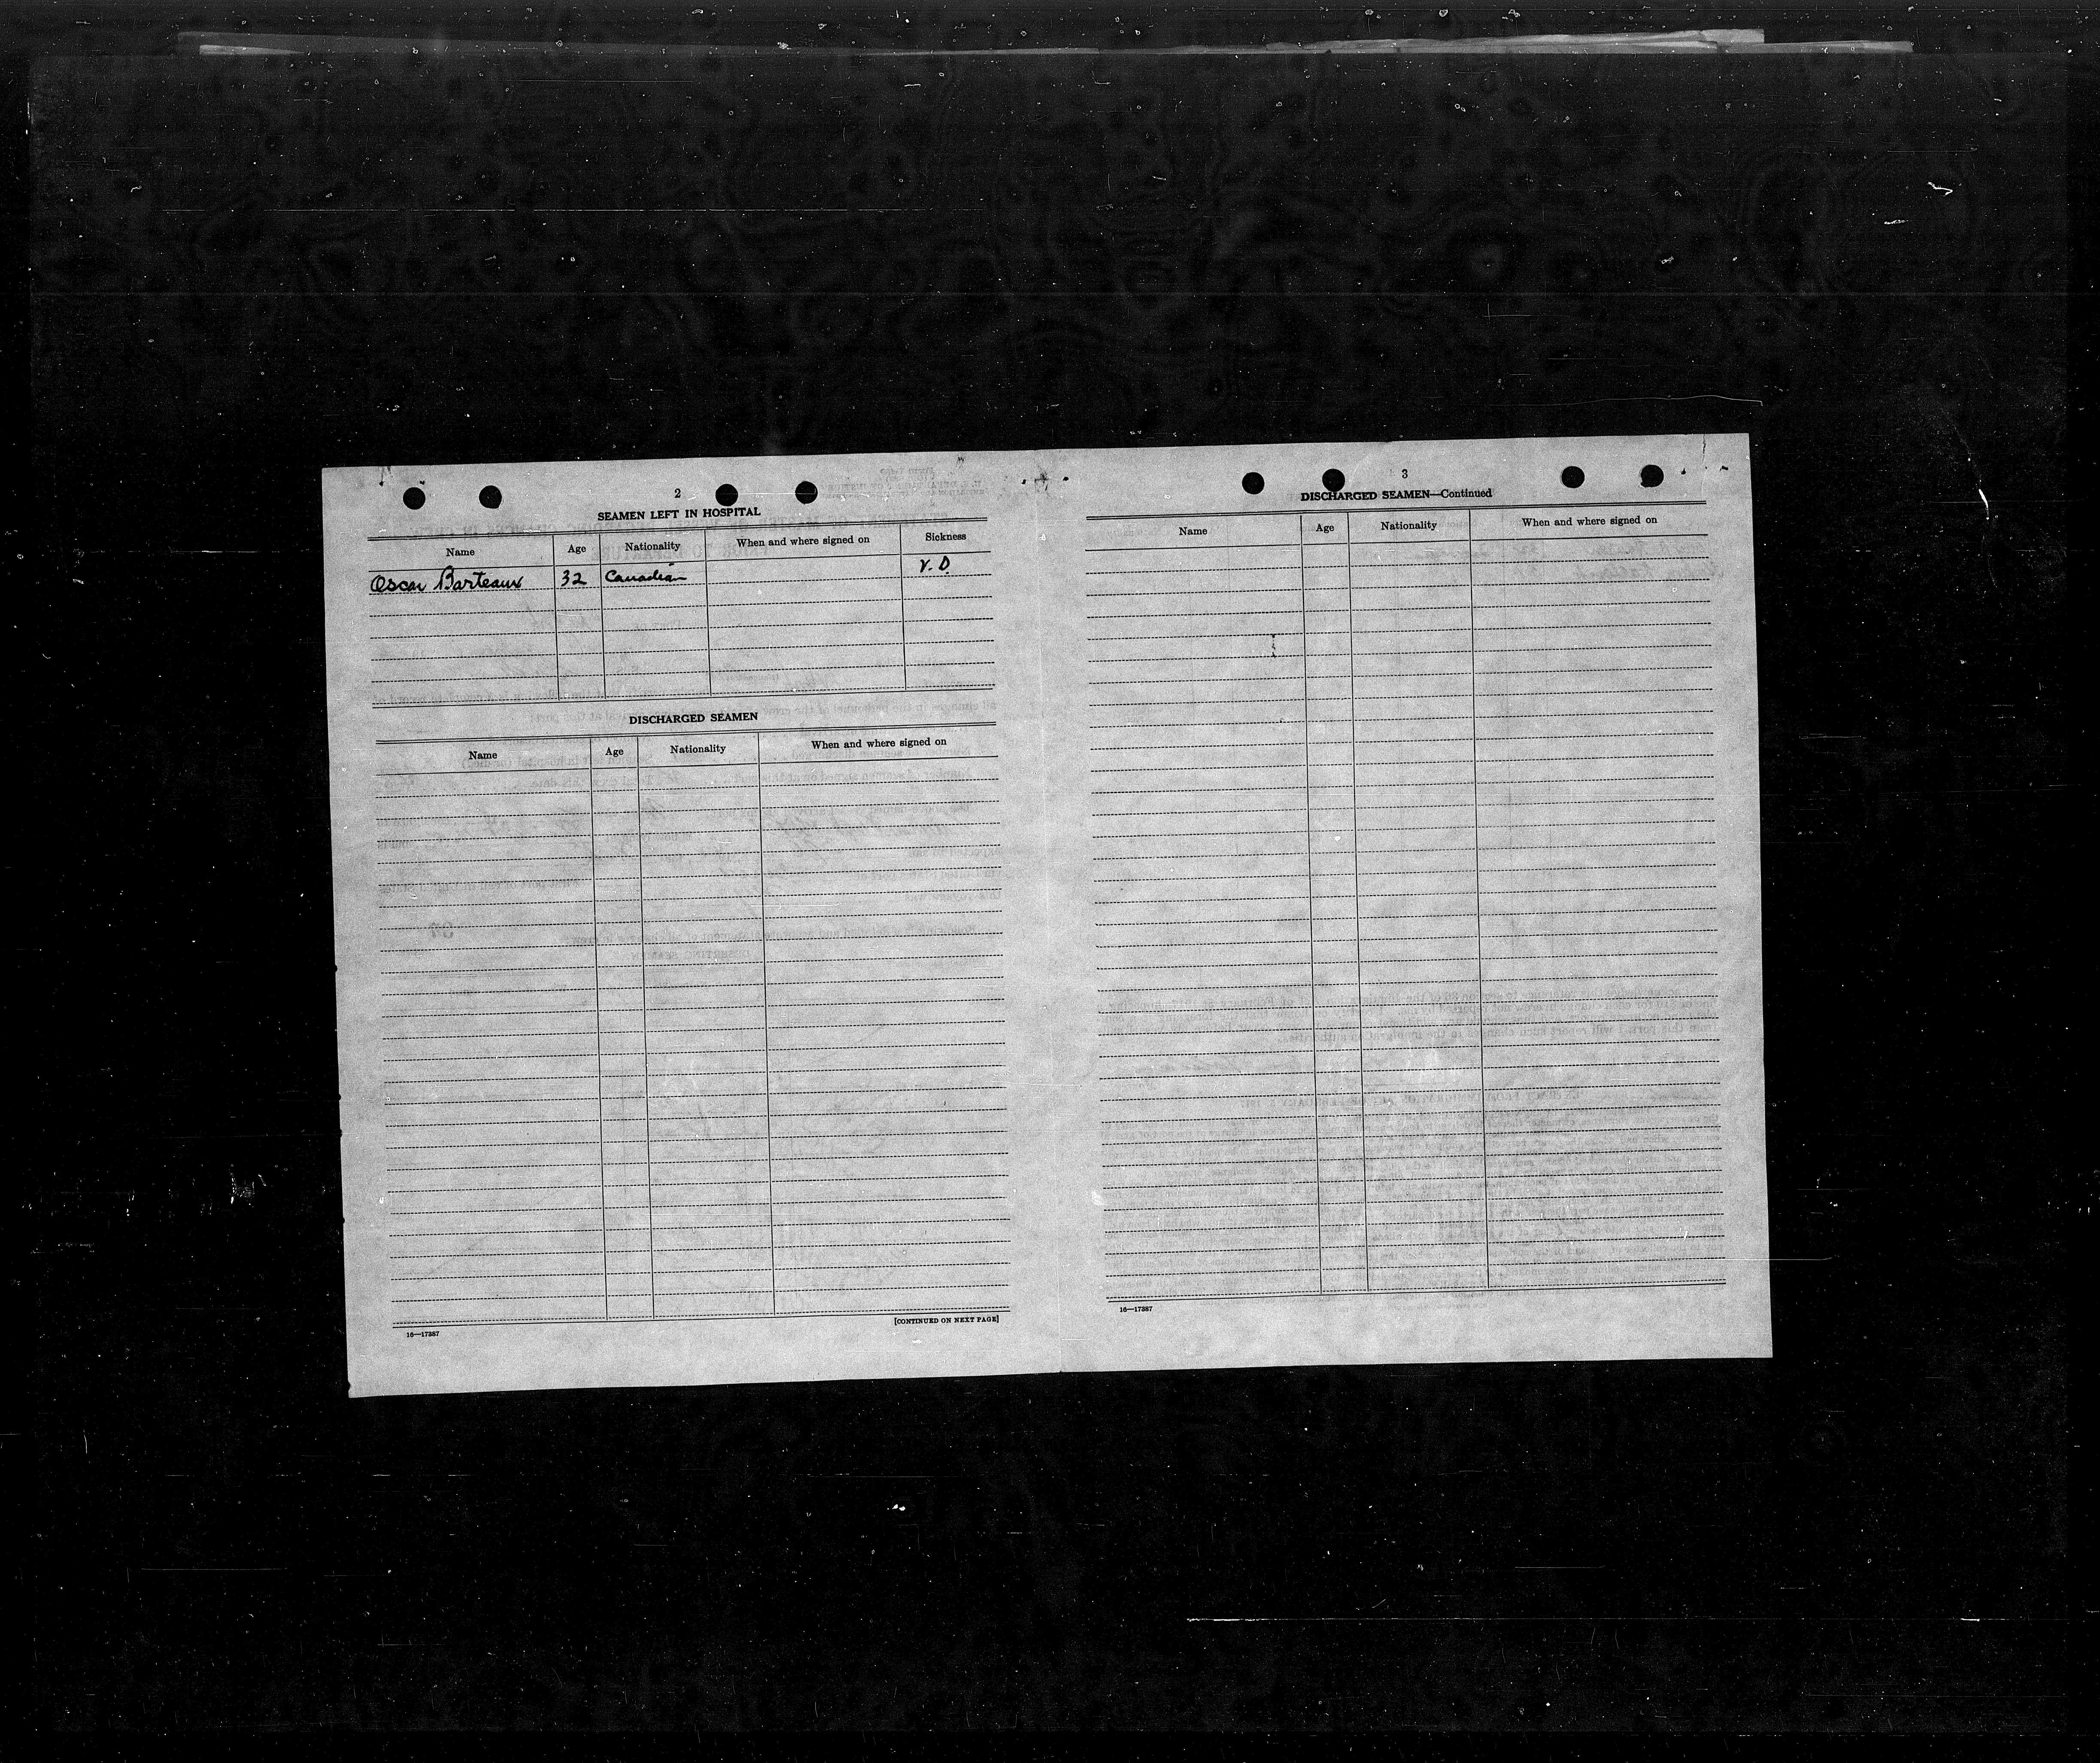 2
SEAMEN LEFT IN HOSPITAL
Name Age Nationality When and where signed on Sickness
Oscar Barteaux 32 Canadian V.D.
DISCHARGED SEAMEN
Name Age Nationality When and where signed on
16—17387
[CONTINUED ON NEXT PAGE]
3
DISCHARGED SEAMEN—Continued
Name Age Nationality When and where signed on
16—17387